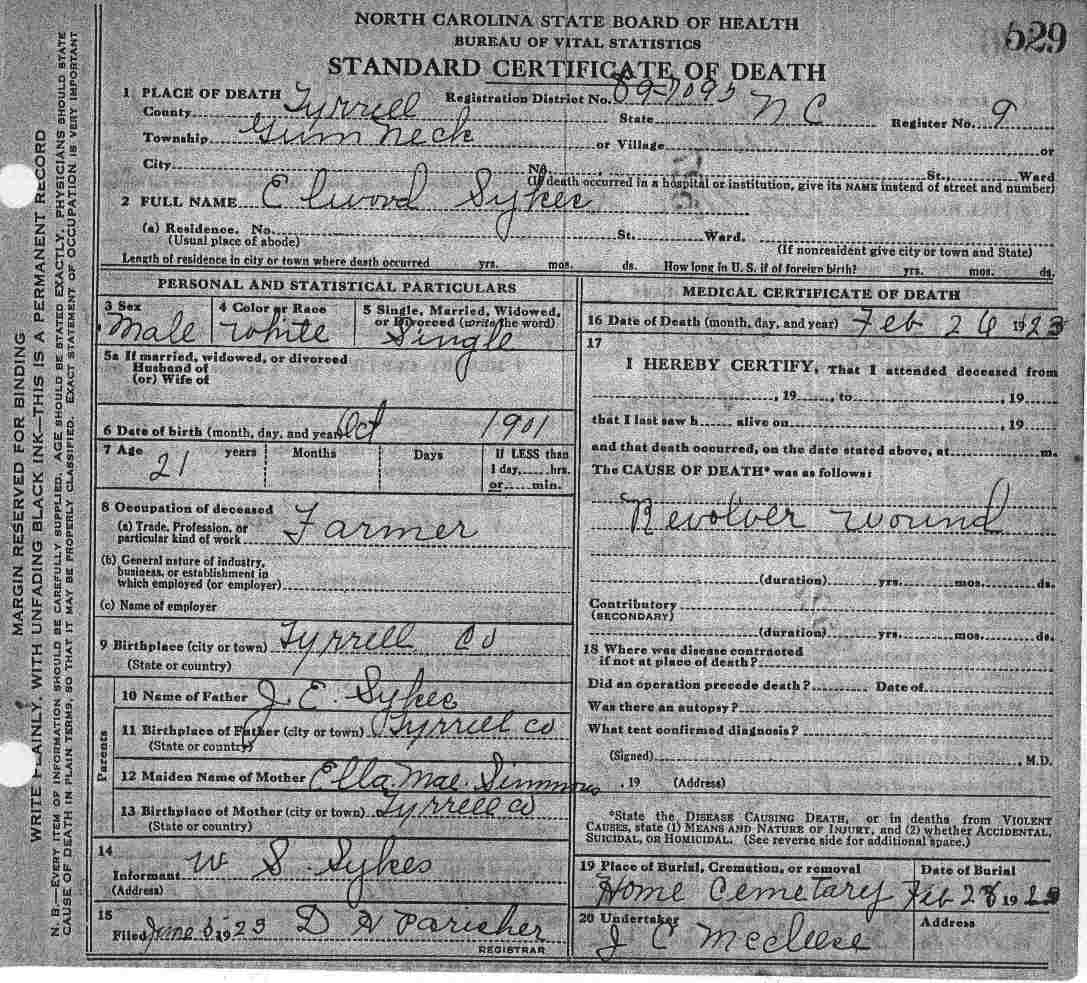 NORTH CAROLINA STATE BOARD OF HEALTH
BUREAU OF VITAL STATISTICS
529
STANDARD CERTIFICATE OF DEATH
1 PLACE OF DEATH
Registration District No. 89-7095
County Tyrrell State N C Register No. 9
Township Gum Neck or Village or
City No. St., Ward
(If death occurred in a hospital or institution, give its NAME instead of street and number)
2 FULL NAME Elwood Sykes
(a) Residence. No. St. Ward.
(Usual place of abode) (If nonresident give city or town and State)
Length of residence in city or town where death occurred yrs. mos. ds. How long in U. S. if of foreign birth? yrs. mos. ds.
PERSONAL AND STATISTICAL PARTICULARS
3 Sex 4 Color or Race 5 Single, Married, Widowed,
or Divorced (write the word)
Male White Single
5a If married, widowed, or divorced
Husband of
(or) Wife of
6 Date of birth (month, day, and year) Oct 1901
7 Age years Months Days If LESS than
21 1 day, hrs.
or min.
8 Occupation of deceased
(a) Trade, Profession, or
particular kind of work Farmer
(b) General nature of industry,
business, or establishment in
which employed (or employer)
(c) Name of employer
9 Birthplace (city or town) Tyrrell Co
(State or country)
Parents
10 Name of Father J. E. Sykes
11 Birthplace of Father (city or town) Tyrrell co
(State or country)
12 Maiden Name of Mother Ella Mae Simmons
13 Birthplace of Mother (city or town) Tyrrell co
(State or country)
14
Informant W S Sykes
(Address)
15
Filed June 1923 D H Parisher
REGISTRAR
MEDICAL CERTIFICATE OF DEATH
16 Date of Death (month, day, and year) Feb 26 1923
17
I HEREBY CERTIFY, That I attended deceased from
, 19 , to , 19
that I last saw h alive on , 19
and that death occurred, on the date stated above, at m.
The CAUSE OF DEATH* was as follows:
Revolver wound
(duration) yrs. mos. ds.
Contributory
(SECONDARY)
(duration) yrs. mos. ds.
18 Where was disease contracted
if not at place of death?
Did an operation precede death? Date of
Was there an autopsy?
What test confirmed diagnosis?
(Signed) , M.D.
, 19 (Address)
*State the DISEASE CAUSING DEATH, or in deaths from VIOLENT
CAUSES, state (1) MEANS AND NATURE OF INJURY, and (2) whether ACCIDENTAL,
SUICIDAL, OR HOMICIDAL. (See reverse side for additional space.)
19 Place of Burial, Cremation, or removal Date of Burial
Home Cemetary Feb 28 1923
20 Undertaker Address
J C McCleese
MARGIN RESERVED FOR BINDING
WRITE PLAINLY, WITH UNFADING BLACK INK—THIS IS A PERMANENT RECORD
N. B.—EVERY ITEM OF INFORMATION SHOULD BE CAREFULLY SUPPLIED. AGE SHOULD BE STATED EXACTLY. PHYSICIANS SHOULD STATE
CAUSE OF DEATH IN PLAIN TERMS, SO THAT IT MAY BE PROPERLY CLASSIFIED. EXACT STATEMENT OF OCCUPATION IS VERY IMPORTANT